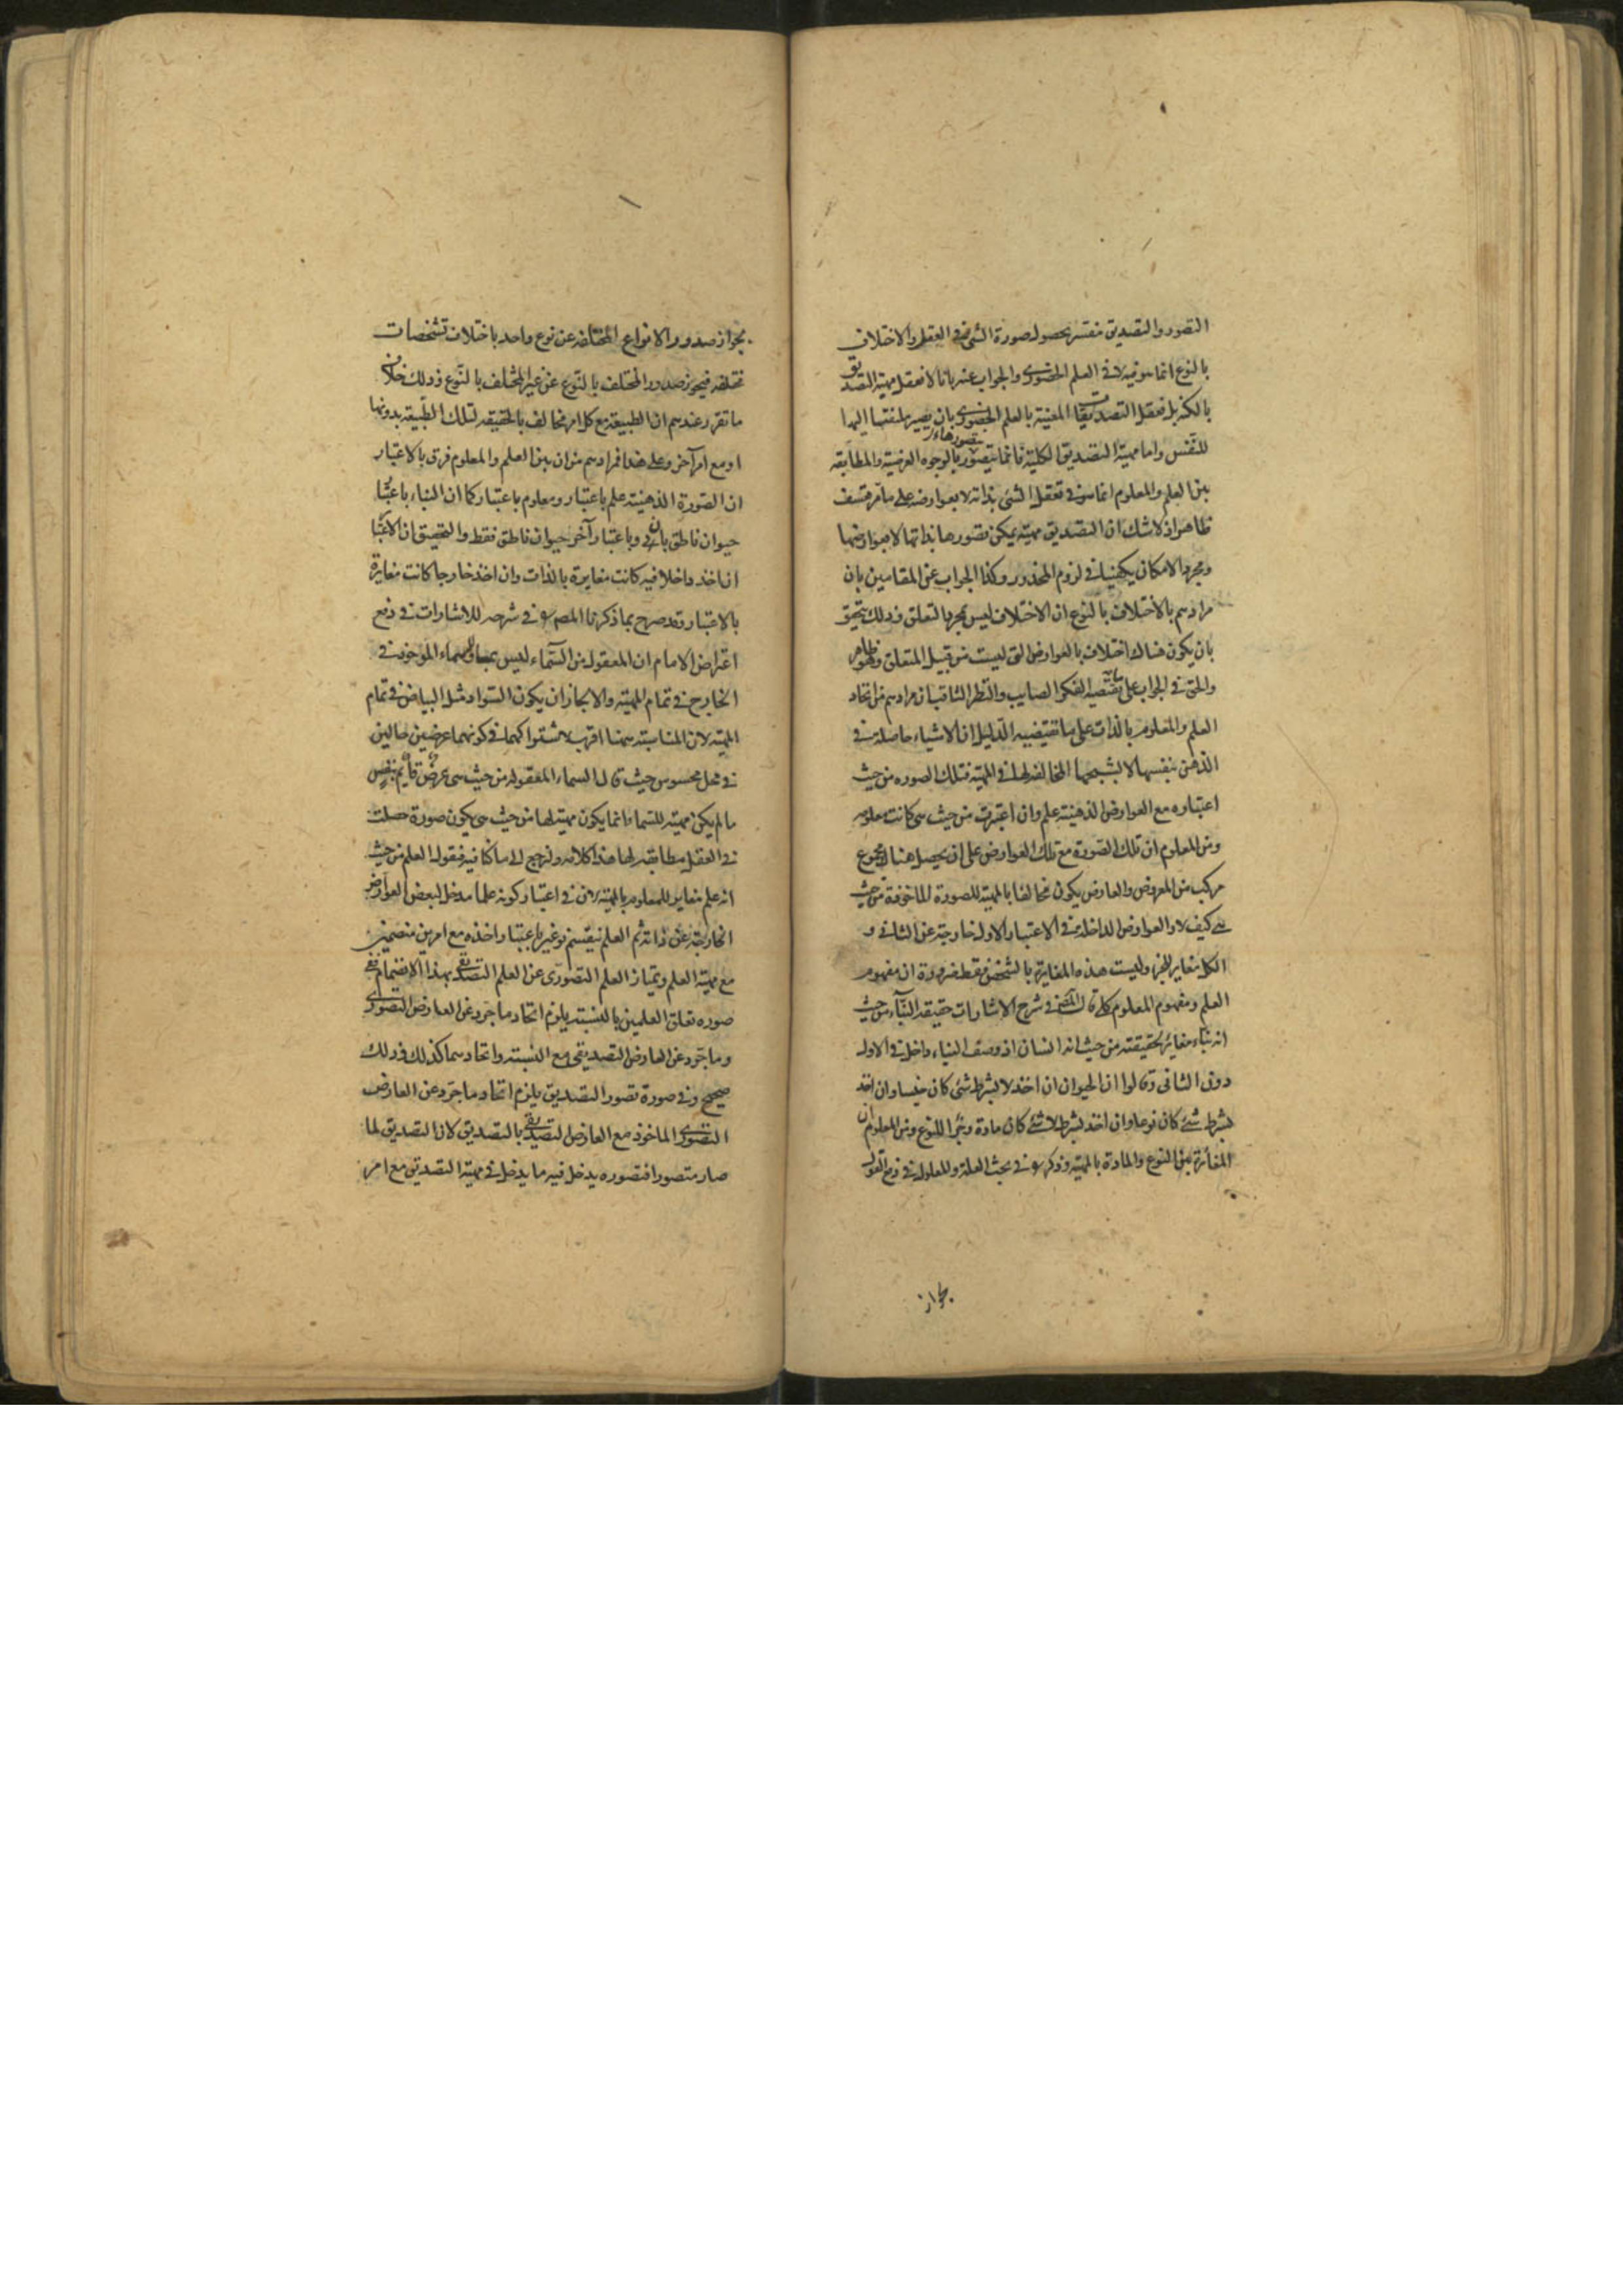 التصور والتصديق منقسم بحصول صورة الشئ في العقل والاختلاف
بالنوع انما هو فيه لا في العلم الحضوري والجواب عنه بانا لا نعقل مهية التصديق
بالكنه بل نعقل التصديقات المعينة بالعلم الحضوري بان يصير ملتفتا اليها
للنفس واما مهية التصديق الكلية فانما نتصورها بالوجوه العرضية والمطابقة
بين العلم والمعلوم انما هو في تعقل الشئ بذاته لا بعوارضه على ما مر فتعسف
ظاهر اذ لا شك ان التصديق مهية يمكن تصورها بذاتها لا بعوارضها
ومجرد الامكان يكفينا في لزوم المحذور وكذا الجواب عن المقامين بان
مرادهم بالاختلاف بالنوع ان الاختلاف ليس بمجرد التعلق وذلك يتحقق
بان يكون هناك اختلاف بالعوارض التي ليست من قبيل المتعلق وهو ظاهر
والحق في الجواب على ما يقتضيه الفكر الصايب والنظر الثاقب ان مرادهم من اتحاد
العلم والمعلوم بالذات على ما تقتضيه الدليل ان الاشياء حاصلة في
الذهن بنفسها لا بشبحها المخالفة لها في المهية فتلك الصورة من حيث
اعتباره مع العوارض الذهنية علم وان اعتبرت من حيث هي كانت معلومه
ومن المعلوم ان تلك الصورة مع تلك العوارض على ان يحصل هناك مجموع
مركب من المعروض والعارض يكون مخالفا بالمهية للصورة الماخوذة من حيث
هي كيف لا والعوارض الداخلة في الاعتبار الاول خارجة عن الثاني و
الكل مغاير للجزء وليست هذه المغايرة بالشخص فقط ضرورة ان مفهوم
العلم ومفهوم المعلوم كلي قال المصنف في شرح الاشارات حقيقة البناء من حيث
انه بناء مغاير لحقيقته من حيث انه انسان اذ وصف البناء داخل في الاول
دون الثاني وقالوا ان الحيوان ان اخذ لا بشرط شئ كان جنسا وان اخذ
بشرط شئ كان نوعا وان اخذ بشرط لا شئ كان مادة وجزء اللنوع ومن المعلوم ان
المغايرة بين النوع والمادة بالمهية وذكر في بحث العلة والمعلول في دفع القول
بجواز
بجواز صدور الانواع المختلفة عن نوع واحد باختلاف تشخصات
مختلفة فيجوز صدور المختلف بالنوع عن غير المختلف بالنوع وذلك خلاف
ما تقرر عندهم ان الطبيعة مع كل امر مخالف بالحقيقة لتلك الطبيعة بدونها
او مع امر آخر وعلى هذا فمرادهم من ان بين العلم والمعلوم فرق بالاعتبار
ان الصورة الذهنية علم باعتبار ومعلوم باعتبار كما ان البناء باعتبار
حيوان ناطق بان وباعتبار آخر حيوان ناطق فقط والتحقيق ان الاعتبار
ان اخذ داخلا فيه كانت مغايرة بالذات وان اخذ خارجا كانت مغايرة
بالاعتبار وقد صرح بما ذكرنا المص في شرحه للاشارات في دفع
اعتراض الامام ان المعقول من السماء ليس بمساو للسماء الموجود في
الخارج في تمام المهية والا لجاز ان يكون السواد مثل البياض في تمام
المهية لان المناسبة بينهما اقرب لاشتراكهما في كونهما عرضين حالين
في محل محسوس حيث قال السماء المعقولة من حيث هي عرض قائم بنفس
ما لم يكن مهية للسماء وانما يكون مهية لها من حيث هي يكون صورة حصلت
في العقل مطابقة لها هذا كلامه ولنرجع الى ما كنا فيه فنقول العلم من حيث
انه علم مغاير للمعلوم بالمهية لان في اعتبار كونه علما مدخل لبعض العوارض
الخارجة عن ذاته ثم العلم ينقسم نوعين باعتبار اخذه مع امرين منضمين
مع مهية العلم ويمتاز العلم التصوري عن العلم التصديقي بهذا الانضمام ففي
صورة تعلق العلمين بالنسبة يلزم اتحاد ما جرد عن العارض التصوري
وما جرد عن العارض التصديقي مع النسبة واتحادهما كذلك وذلك
صحيح وفي صورة تصور التصديق يلزم اتحاد ما جرد عن العارض
التصوري الماخوذ مع العارض التصديقي بالتصديق لان التصديق لما
صار متصورا فتصوره يدخل فيه ما يدخل في مهية التصديق مع امر